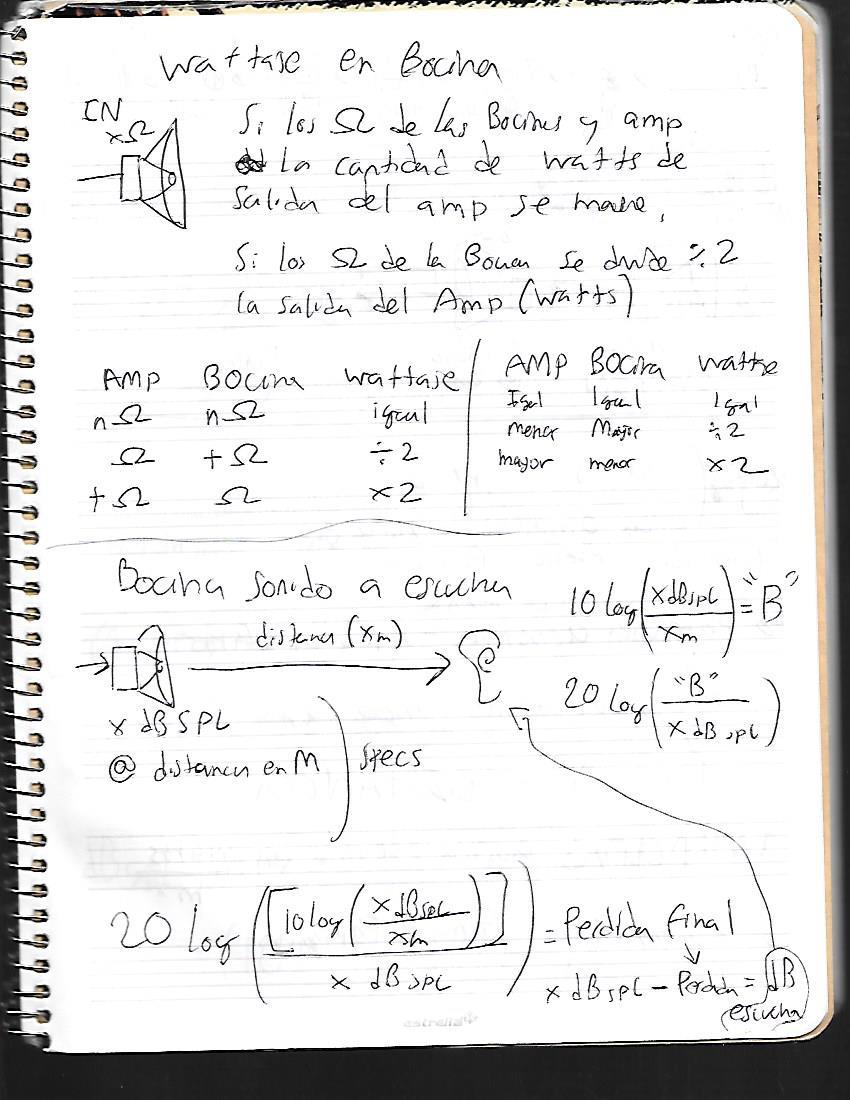 Wattaje en Bocina
IN
xΩ
Si los Ω de las Bocinas y amp
la cantidad de watts de
salida del amp se mane,
Si los Ω de la Bocina se divide ÷2
la salida del Amp (watts)
AMP Bocina wattaje
nΩ nΩ igual
Ω +Ω ÷2
+Ω Ω x2
AMP Bocina watt
Igual Igual Igual
menor Mayor ÷2
mayor menor x2
Bocina sonido a escucha
distancia (xm)
x dB SPL
@ distancia en M
specs
10 log(xdBspl/xm) = "B"
20 log("B"/x dB spl)
20 log([10 log(xdBspl/xm)]/x dB spl) = Perdida final
x dB SPL - Perdida = dB
escucha